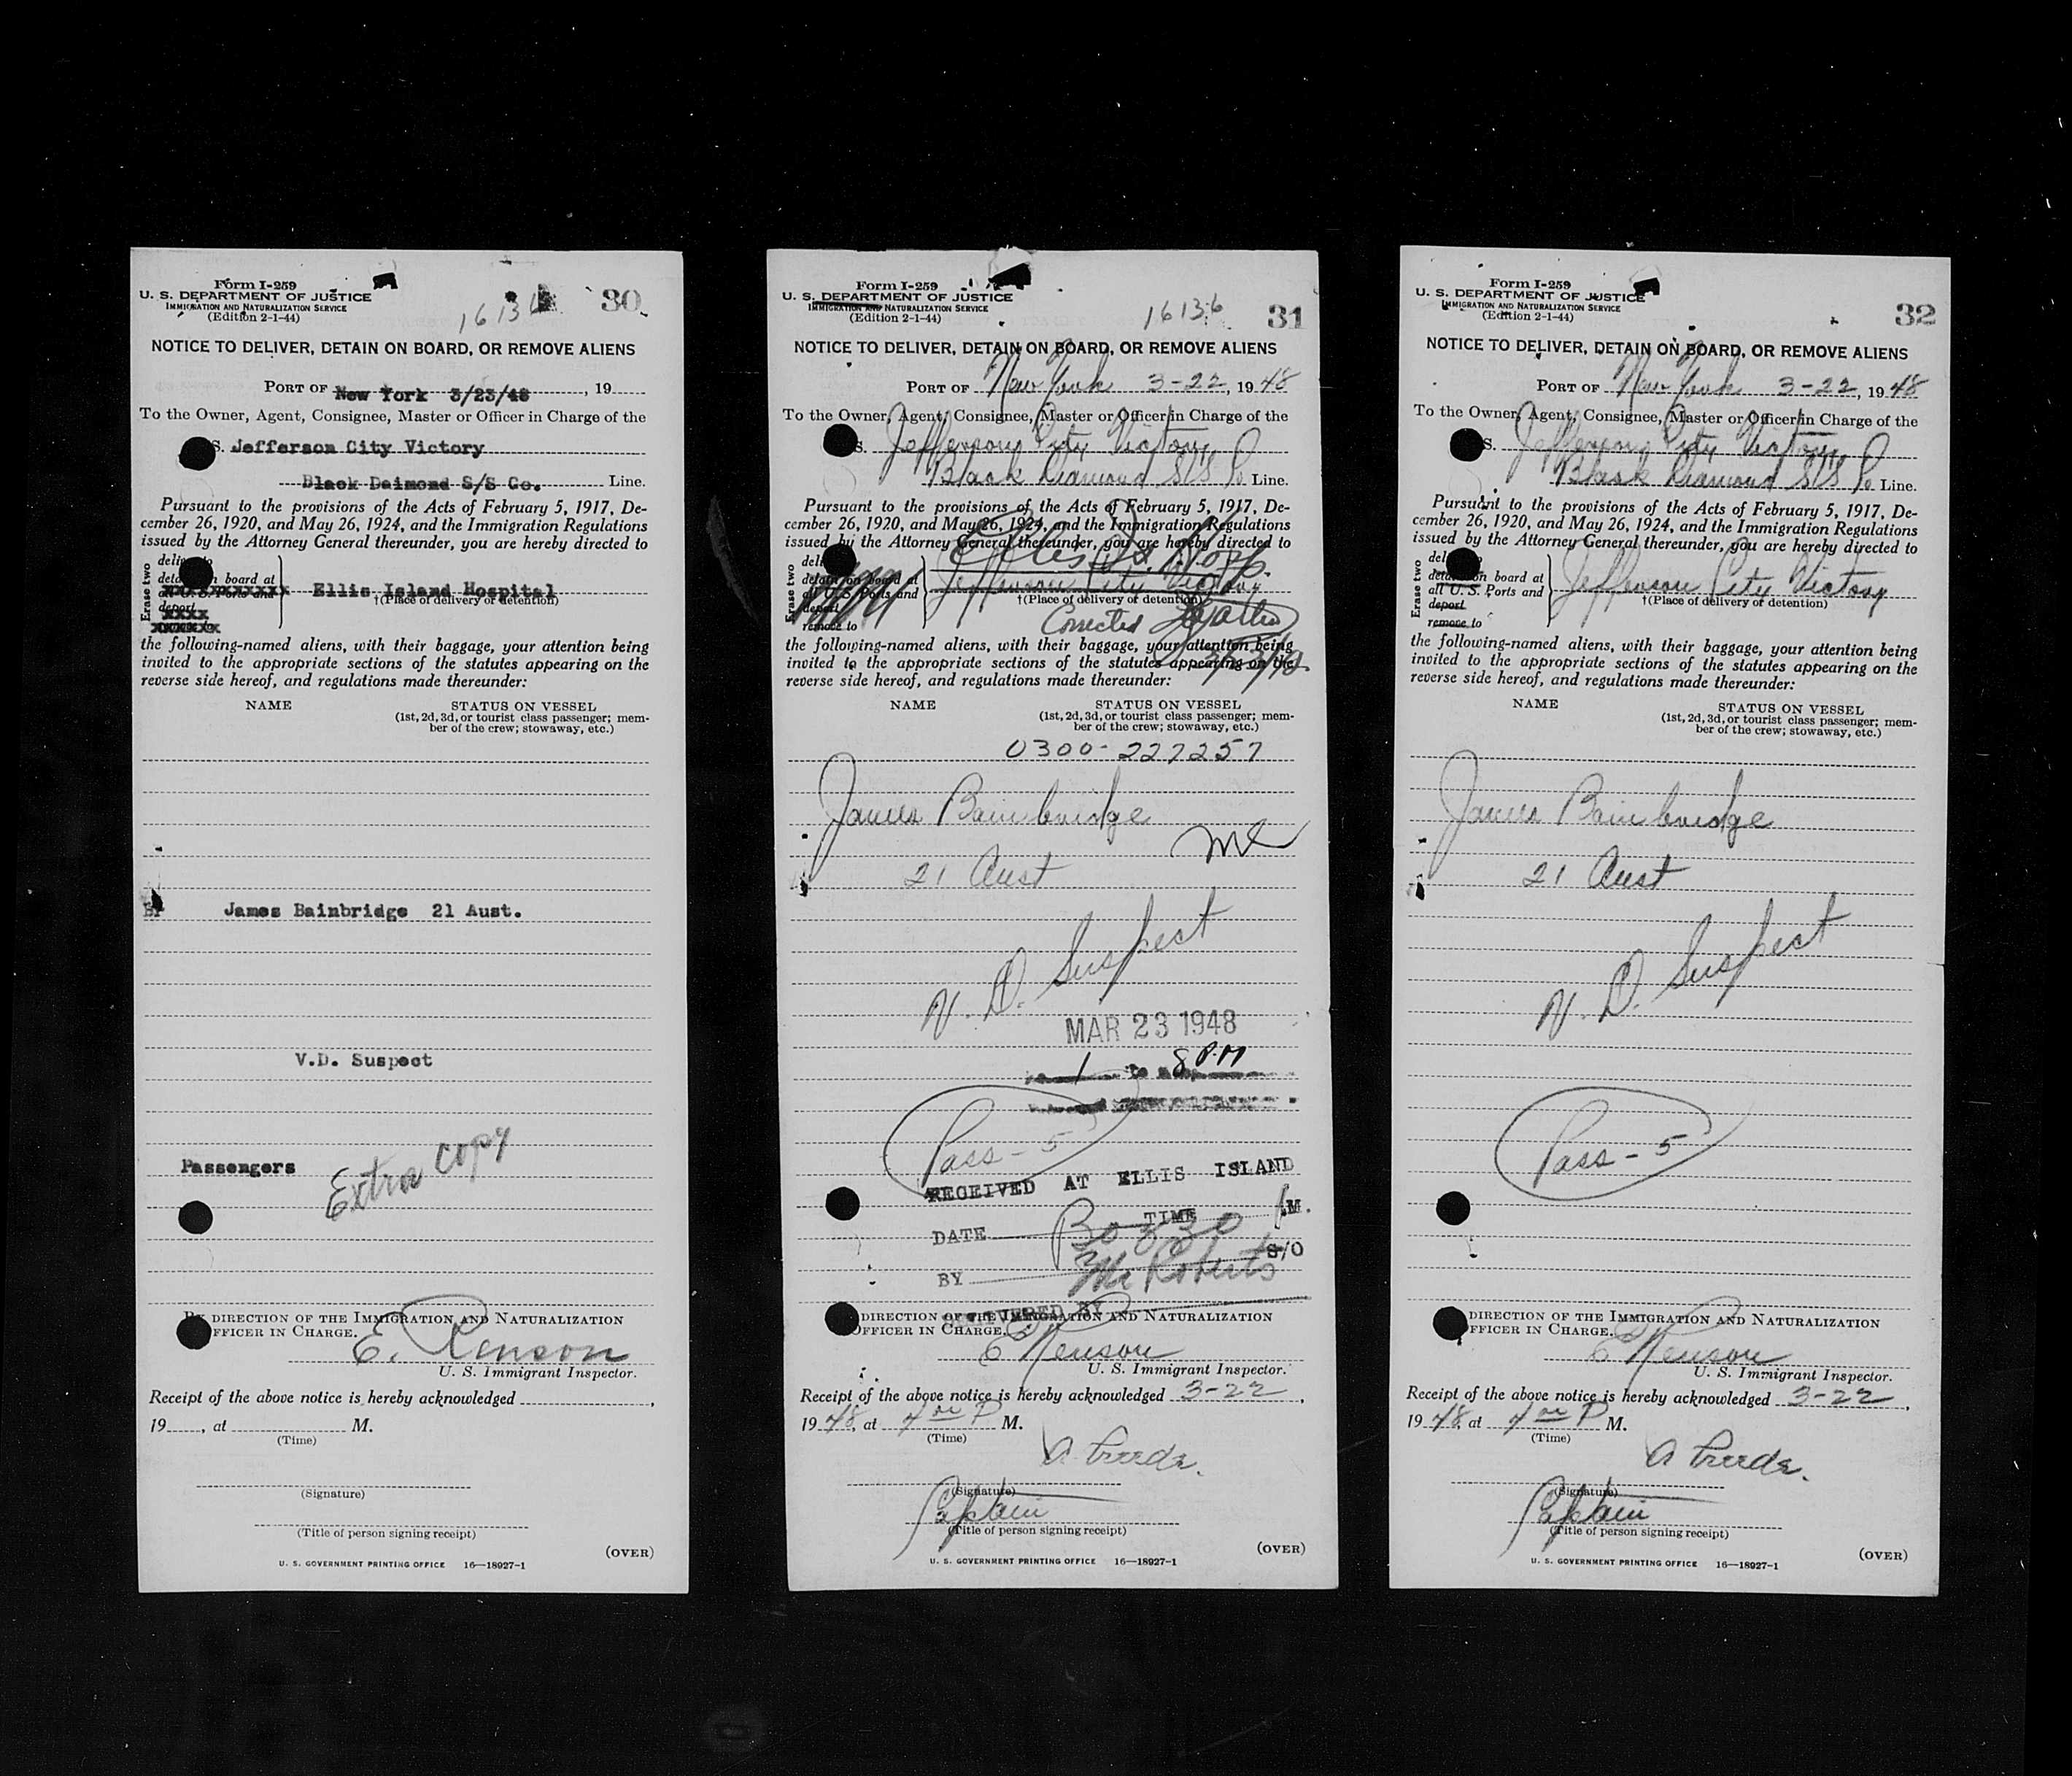 Form I-259
U. S. DEPARTMENT OF JUSTICE
IMMIGRATION AND NATURALIZATION SERVICE
(Edition 2-1-44)
1613
30
NOTICE TO DELIVER, DETAIN ON BOARD, OR REMOVE ALIENS
PORT OF New York 3/23/48, 19
To the Owner, Agent, Consignee, Master or Officer in Charge of the
S. Jefferson City Victory
Black Daimond S/S Co. Line.
Pursuant to the provisions of the Acts of February 5, 1917, De-
cember 26, 1920, and May 26, 1924, and the Immigration Regulations
issued by the Attorney General thereunder, you are hereby directed to
Erase two
board at
Ellis Island Hospital
†(Place of delivery or detention)
deport
the following-named aliens, with their baggage, your attention being
invited to the appropriate sections of the statutes appearing on the
reverse side hereof, and regulations made thereunder:
NAME
STATUS ON VESSEL
(1st, 2d, 3d, or tourist class passenger; mem-
ber of the crew; stowaway, etc.)
James Bainbridge 21 Aust.
V.D. Suspect
Passengers
Extra copy
BY DIRECTION OF THE IMMIGRATION AND NATURALIZATION
OFFICER IN CHARGE.
E. Renson
U. S. Immigrant Inspector.
Receipt of the above notice is hereby acknowledged ,
19 , at M.
(Time)
(Signature)
(Title of person signing receipt)
(OVER)
U. S. GOVERNMENT PRINTING OFFICE 16—18927-1
Form I-259
U. S. DEPARTMENT OF JUSTICE
IMMIGRATION AND NATURALIZATION SERVICE
(Edition 2-1-44)
16136
31
NOTICE TO DELIVER, DETAIN ON BOARD, OR REMOVE ALIENS
PORT OF New York 3-22, 1948
To the Owner, Agent, Consignee, Master or Officer in Charge of the
S. Jefferson City Victory
Black Diamond S/S Co Line.
Pursuant to the provisions of the Acts of February 5, 1917, De-
cember 26, 1920, and May 26, 1924, and the Immigration Regulations
issued by the Attorney General thereunder, you are hereby directed to
Ellis Isl. Hosp.
Erase two
detain on board at
all U. S. Ports and
Jefferson City Victory
†(Place of delivery or detention)
deport
remove to
Corrected
the following-named aliens, with their baggage, your attention being
invited to the appropriate sections of the statutes appearing on the
3/23/48
reverse side hereof, and regulations made thereunder:
NAME
STATUS ON VESSEL
(1st, 2d, 3d, or tourist class passenger; mem-
ber of the crew; stowaway, etc.)
0300-227257
James Bainbridge
21 Aust
V. D. Suspect
MAR 23 1948
1 to 8 PM
Pass - 5
RECEIVED AT ELLIS ISLAND
DATE TIME M.
S/O
BY Mr Roberts
DELIVERED BY
BY DIRECTION OF THE IMMIGRATION AND NATURALIZATION
OFFICER IN CHARGE.
E Renson
U. S. Immigrant Inspector.
Receipt of the above notice is hereby acknowledged 3-22,
1948, at 4 00 P M.
(Time)
(Signature)
Captain
(Title of person signing receipt)
(OVER)
U. S. GOVERNMENT PRINTING OFFICE 16—18927-1
Form I-259
U. S. DEPARTMENT OF JUSTICE
IMMIGRATION AND NATURALIZATION SERVICE
(Edition 2-1-44)
32
NOTICE TO DELIVER, DETAIN ON BOARD, OR REMOVE ALIENS
PORT OF New York 3-22, 1948
To the Owner, Agent, Consignee, Master or Officer in Charge of the
S. Jefferson City Victory
Black Diamond S/S Co Line.
Pursuant to the provisions of the Acts of February 5, 1917, De-
cember 26, 1920, and May 26, 1924, and the Immigration Regulations
issued by the Attorney General thereunder, you are hereby directed to
Erase two
detain on board at
all U. S. Ports and
Jefferson City Victory
†(Place of delivery or detention)
deport
remove to
the following-named aliens, with their baggage, your attention being
invited to the appropriate sections of the statutes appearing on the
reverse side hereof, and regulations made thereunder:
NAME
STATUS ON VESSEL
(1st, 2d, 3d, or tourist class passenger; mem-
ber of the crew; stowaway, etc.)
James Bainbridge
21 Aust
V. D. Suspect
Pass - 5
BY DIRECTION OF THE IMMIGRATION AND NATURALIZATION
OFFICER IN CHARGE.
E Renson
U. S. Immigrant Inspector.
Receipt of the above notice is hereby acknowledged 3-22,
1948, at 4 00 P M.
(Time)
(Signature)
Captain
(Title of person signing receipt)
(OVER)
U. S. GOVERNMENT PRINTING OFFICE 16—18927-1